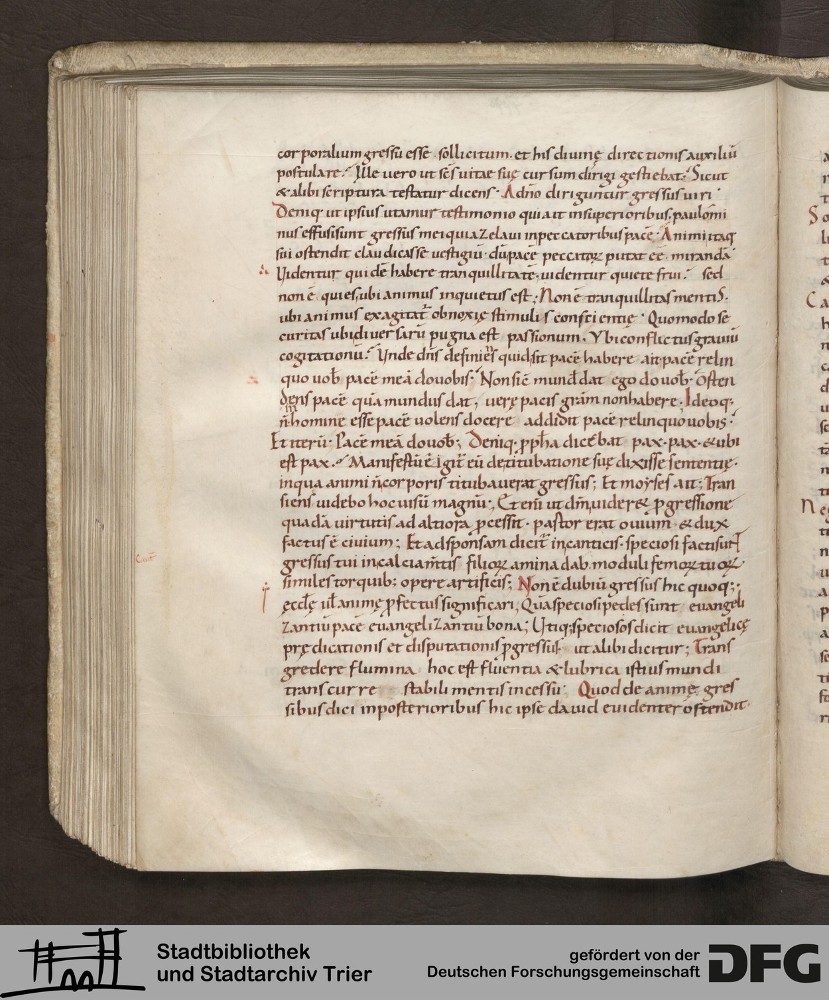 corporalium gressū esse sollicitum. et his divinę directionis auxiliū
postulare. Ille vero ut scs vitae suę cursum dirigi gestiebat. Sicut
& alibi scriptura testatur dicens. A dno diriguntur gressus viri
Deniq ut ipsius utamur testimonio qui ait in superioribus. paulomi
nus effusi sunt gressus mei quia zelavi in peccatoribus pacē. Animi itaq
sui ostendit claudicasse vestigiū. dū pacē peccatorꝝ putat eē mirandā
Videntur quidē habere tranquillitatē. videntur quiete frui. sed
non ē quies, ubi animus inquietus est; Non ē tranquillitas mentis.
ubi animus exagitat obnoxię stimulis conscientię. Quomodo se
curitas ubi diversarū pugna est passionum. Ubi conflictus graviū
cogitationū. Unde dns definiēs quid sit pacē habere ait pacē relin
quo vob pacē meā do vobis. Non sic mund dat ego do vob. Osten
dens pacē quā mundus dat, verę pacis gram non habere. Ideoq.
n homine esse pacē volens docere addidit pacē relinquo vobis.
Et iterū. Pacē meā do vob; Deniq. ppha dicebat pax. pax. & ubi
est pax. Manifestū ē igit eū de titubatione suę dixisse sententię.
in qua animi n corporis titubaverat gressus; Et moyses ait; Tran
siens videbo hoc visū magnū; Et enī ut dm vider& pgressione
quadā virtutis ad altiora pcessit. pastor erat ovium & dux
factus ē civium; Et ad sponsam dicit in canticis. speciosi facti sunt
gressus tui in calciamtis filia aminadab. moduli femorꝝ tuorꝝ
similes torquib: opere artificis; Non ē dubiū gressus hic quoq;
ęcclę ul animę pfectus significari, Quā speciosi pedes sunt evangeli
zantiū pacē evangelizantiū bona; Utiq; speciosos dicit evangelicę
prędicationis et disputationis pgressus ut alibi dicitur; Trans
gredere flumina hoc est fluenta & lubrica istius mundi
transcurre stabili mentis incessu. Quod de animę gres
sibus dici in posterioribus hic ipse david evidenter ostendit.
Stadtbibliothek
und Stadtarchiv Trier
gefördert von der
Deutschen Forschungsgemeinschaft
DFG